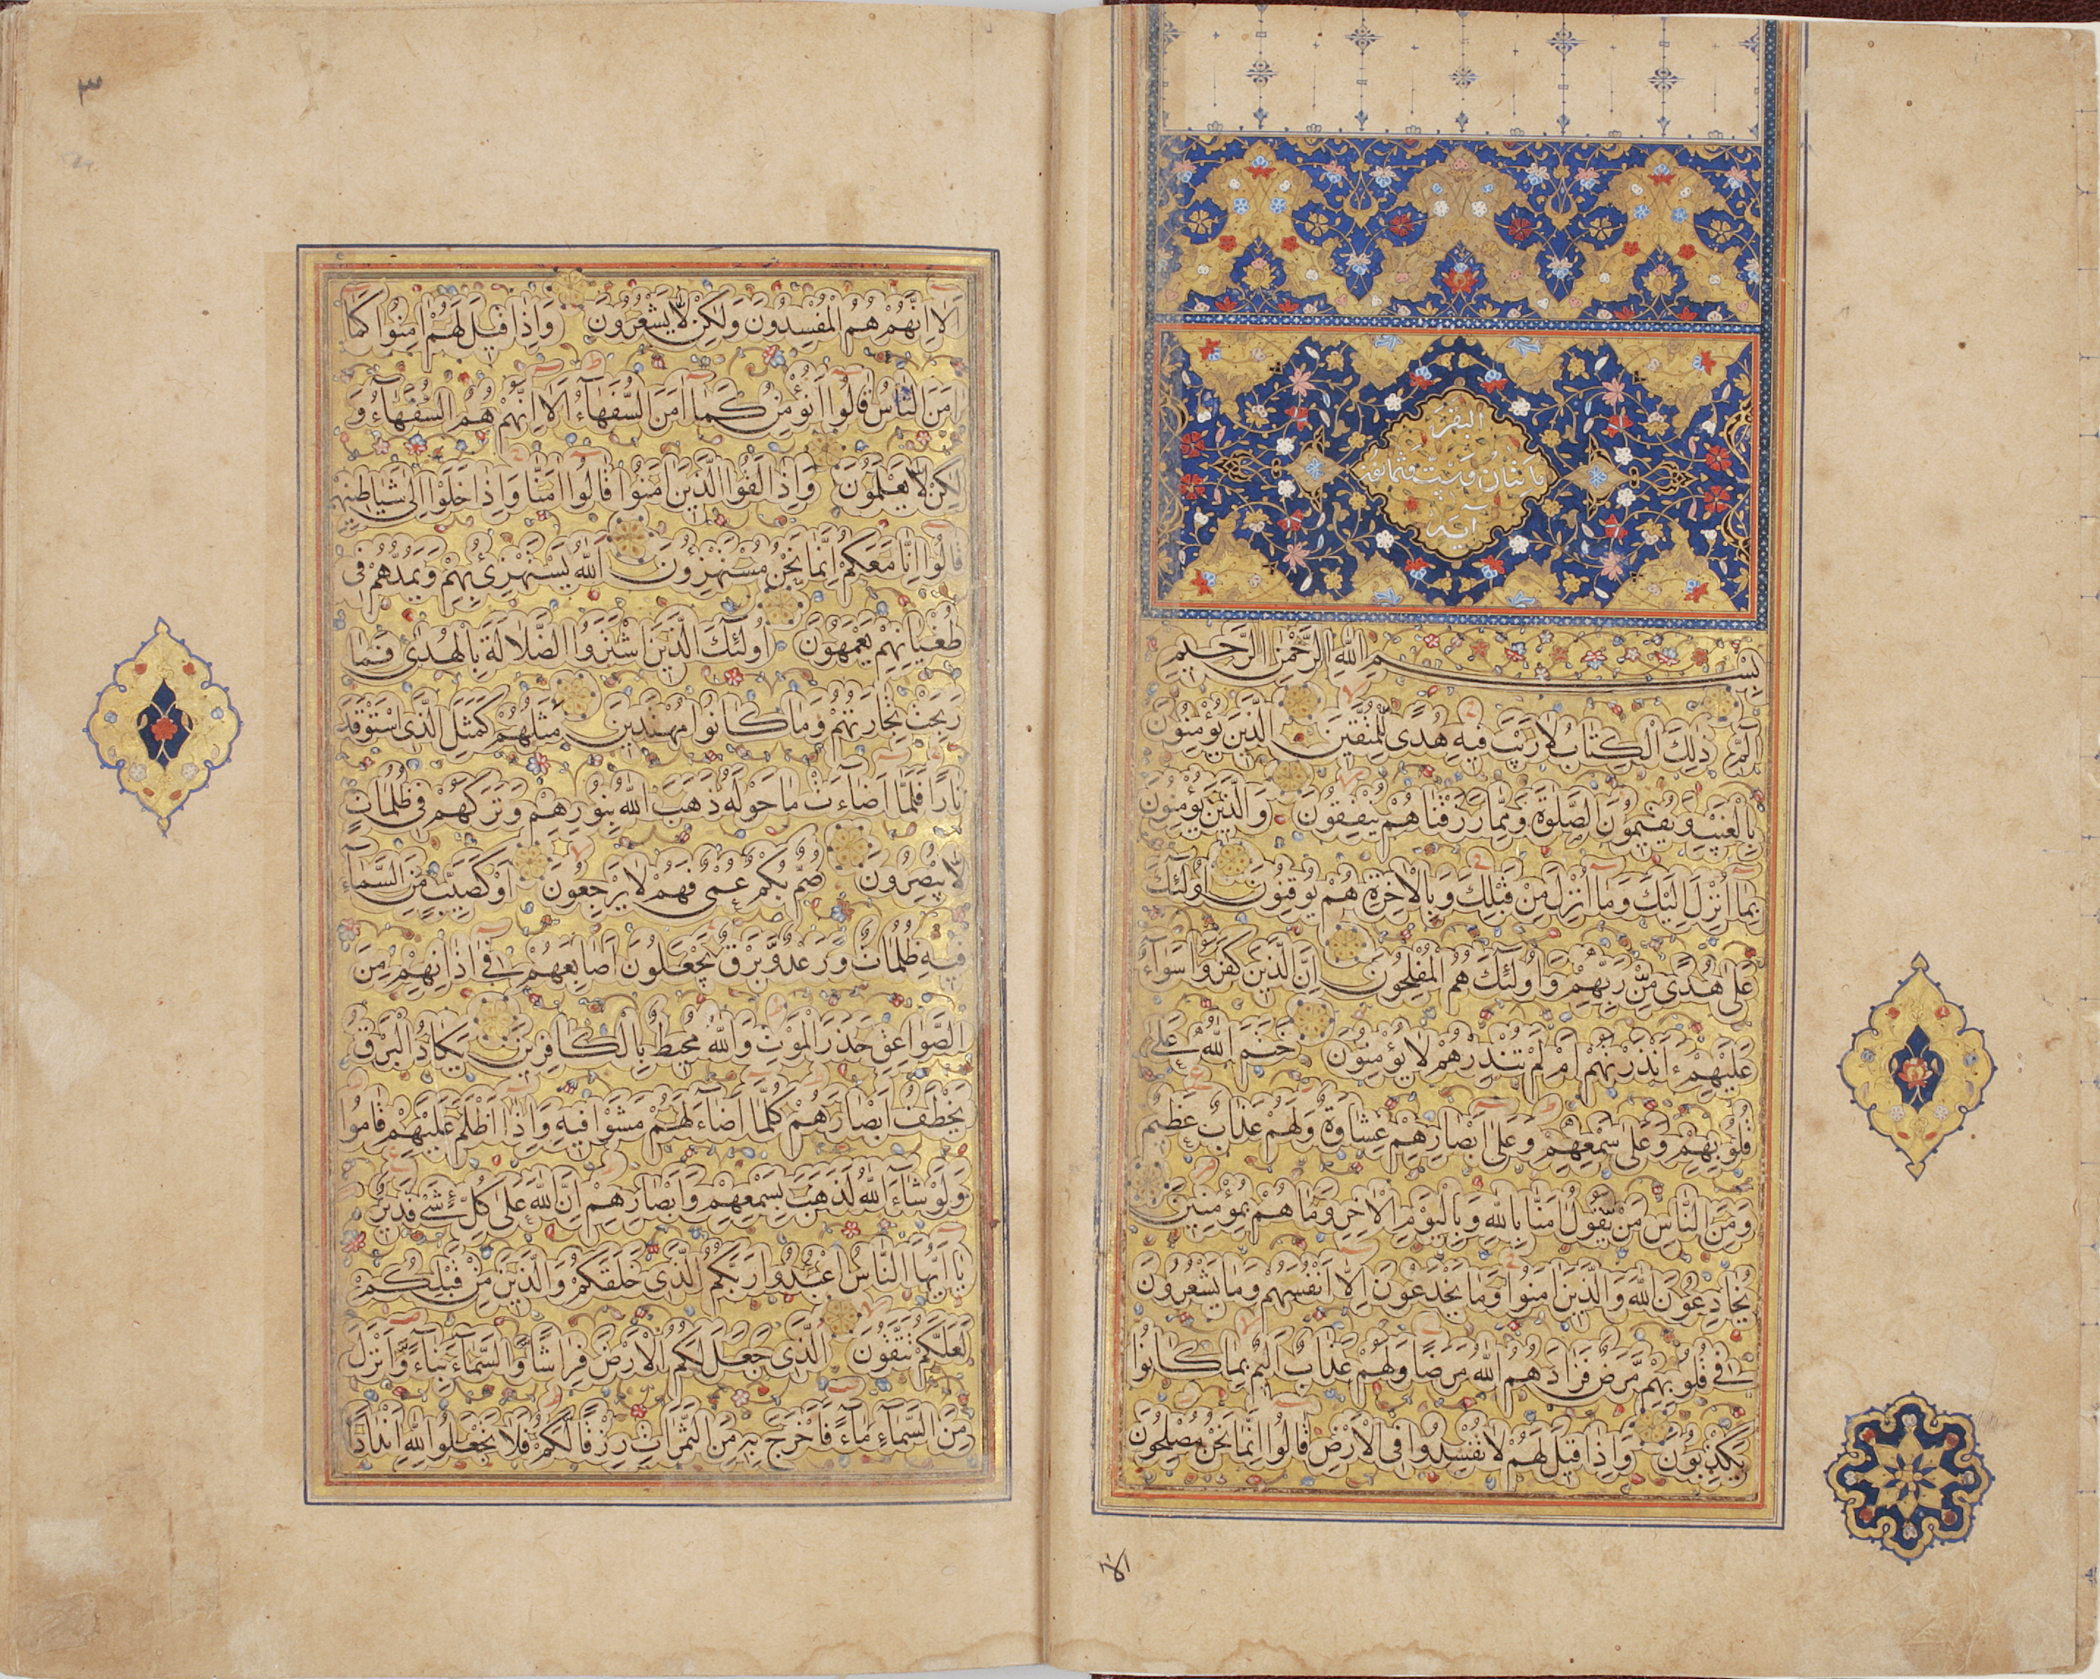 البقرة
مائتان وست وثمانون
آية
بِسْمِ اللهِ الرَّحْمٰنِ الرَّحِيمِ
الٓمٓ ذٰلِكَ الْكِتَابُ لَا رَيْبَ فِيهِ هُدًى لِلْمُتَّقِينَ الَّذِينَ يُؤْمِنُونَ
بِالْغَيْبِ وَيُقِيمُونَ الصَّلٰوةَ وَمِمَّا رَزَقْنَاهُمْ يُنْفِقُونَ وَالَّذِينَ يُؤْمِنُونَ
بِمَآ اُنْزِلَ اِلَيْكَ وَمَآ اُنْزِلَ مِنْ قَبْلِكَ وَبِالْاٰخِرَةِ هُمْ يُوقِنُونَ اُولٰٓئِكَ
عَلٰى هُدًى مِنْ رَبِّهِمْ وَاُولٰٓئِكَ هُمُ الْمُفْلِحُونَ اِنَّ الَّذِينَ كَفَرُوا سَوَآءٌ
عَلَيْهِمْ ءَاَنْذَرْتَهُمْ اَمْ لَمْ تُنْذِرْهُمْ لَا يُؤْمِنُونَ خَتَمَ اللهُ عَلٰى
قُلُوبِهِمْ وَعَلٰى سَمْعِهِمْ وَعَلٰٓى اَبْصَارِهِمْ غِشَاوَةٌ وَلَهُمْ عَذَابٌ عَظِيمٌ
وَمِنَ النَّاسِ مَنْ يَقُولُ اٰمَنَّا بِاللهِ وَبِالْيَوْمِ الْاٰخِرِ وَمَا هُمْ بِمُؤْمِنِينَ
يُخَادِعُونَ اللهَ وَالَّذِينَ اٰمَنُوا وَمَا يَخْدَعُونَ اِلَّآ اَنْفُسَهُمْ وَمَا يَشْعُرُونَ
فِي قُلُوبِهِمْ مَرَضٌ فَزَادَهُمُ اللهُ مَرَضًا وَلَهُمْ عَذَابٌ اَلِيمٌ بِمَا كَانُوا
يَكْذِبُونَ وَاِذَا قِيلَ لَهُمْ لَا تُفْسِدُوا فِي الْاَرْضِ قَالُوٓا اِنَّمَا نَحْنُ مُصْلِحُونَ
الا
٣
اَلَآ اِنَّهُمْ هُمُ الْمُفْسِدُونَ وَلٰكِنْ لَا يَشْعُرُونَ وَاِذَا قِيلَ لَهُمْ اٰمِنُوا كَمَآ
اٰمَنَ النَّاسُ قَالُوٓا اَنُؤْمِنُ كَمَآ اٰمَنَ السُّفَهَآءُ اَلَآ اِنَّهُمْ هُمُ السُّفَهَآءُ وَ
لٰكِنْ لَا يَعْلَمُونَ وَاِذَا لَقُوا الَّذِينَ اٰمَنُوا قَالُوٓا اٰمَنَّا وَاِذَا خَلَوْا اِلٰى شَيَاطِينِهِمْ
قَالُوٓا اِنَّا مَعَكُمْ اِنَّمَا نَحْنُ مُسْتَهْزِؤُنَ اَللهُ يَسْتَهْزِئُ بِهِمْ وَيَمُدُّهُمْ فِي
طُغْيَانِهِمْ يَعْمَهُونَ اُولٰٓئِكَ الَّذِينَ اشْتَرَوُا الضَّلَالَةَ بِالْهُدٰى فَمَا
رَبِحَتْ تِجَارَتُهُمْ وَمَا كَانُوا مُهْتَدِينَ مَثَلُهُمْ كَمَثَلِ الَّذِي اسْتَوْقَدَ
نَارًا فَلَمَّآ اَضَآءَتْ مَا حَوْلَهُ ذَهَبَ اللهُ بِنُورِهِمْ وَتَرَكَهُمْ فِي ظُلُمَاتٍ
لَا يُبْصِرُونَ صُمٌّ بُكْمٌ عُمْيٌ فَهُمْ لَا يَرْجِعُونَ اَوْ كَصَيِّبٍ مِنَ السَّمَآءِ
فِيهِ ظُلُمَاتٌ وَرَعْدٌ وَبَرْقٌ يَجْعَلُونَ اَصَابِعَهُمْ فِيٓ اٰذَانِهِمْ مِنَ
الصَّوَاعِقِ حَذَرَ الْمَوْتِ وَاللهُ مُحِيطٌ بِالْكَافِرِينَ يَكَادُ الْبَرْقُ
يَخْطَفُ اَبْصَارَهُمْ كُلَّمَآ اَضَآءَ لَهُمْ مَشَوْا فِيهِ وَاِذَآ اَظْلَمَ عَلَيْهِمْ قَامُوا
وَلَوْ شَآءَ اللهُ لَذَهَبَ بِسَمْعِهِمْ وَاَبْصَارِهِمْ اِنَّ اللهَ عَلٰى كُلِّ شَيْءٍ قَدِيرٌ
يَآ اَيُّهَا النَّاسُ اعْبُدُوا رَبَّكُمُ الَّذِي خَلَقَكُمْ وَالَّذِينَ مِنْ قَبْلِكُمْ
لَعَلَّكُمْ تَتَّقُونَ اَلَّذِي جَعَلَ لَكُمُ الْاَرْضَ فِرَاشًا وَالسَّمَآءَ بِنَآءً وَاَنْزَلَ
مِنَ السَّمَآءِ مَآءً فَاَخْرَجَ بِهِ مِنَ الثَّمَرَاتِ رِزْقًا لَكُمْ فَلَا تَجْعَلُوا لِلّٰهِ اَنْدَادًا